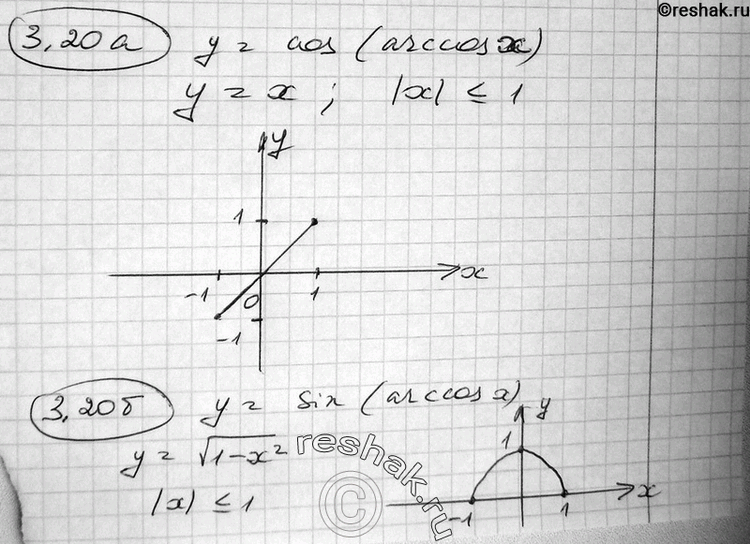 ©reshak.ru
3,20а y = cos (arccos x)
y = x ; |x| ≤ 1
y
1
x
-1 0 1
-1
3,20б y = sin (arccos x)
y
y = √1-x²
1
|x| ≤ 1
x
-1 1
reshak.ru
©